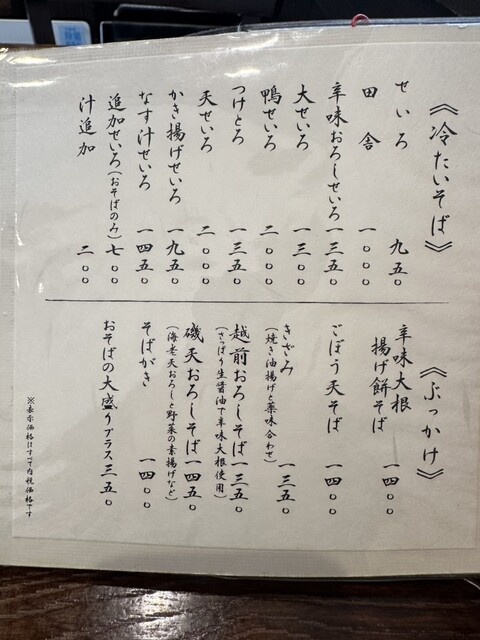 《冷たいそば》
せいろ 九五〇
田舎 一〇〇〇
辛味おろしせいろ 一三五〇
大せいろ 一三〇〇
鴨せいろ 二〇〇〇
つけとろ 一三五〇
天せいろ 二〇〇〇
かき揚げせいろ 一九五〇
なす汁せいろ 一四五〇
追加せいろ(おそばのみ) 七〇〇
汁追加 二〇〇
《ぶっかけ》
辛味大根
揚げ餅そば 一四〇〇
ごぼう天そば 一四〇〇
きざみ 一三五〇
(焼き油揚げと薬味合わせ)
越前おろしそば 一三五〇
(さっぱり生醤油で辛味大根使用)
磯天おろしそば 一四五〇
(海老天おろしと野菜の素揚げなど)
そばがき 一四〇〇
おそばの大盛りプラス三五〇
※表示価格はすべて内税価格です